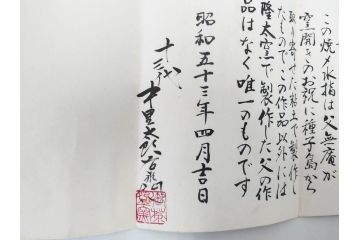 この焼〆水指は父無庵が
窯開きのお祝に種子島から
取り寄せた粘土で製作し
たもので この作品以外には
隆太窯で製作した父の作
品はなく唯一のものです
昭和五十三年四月吉日
十三代 中里太郎右衛門